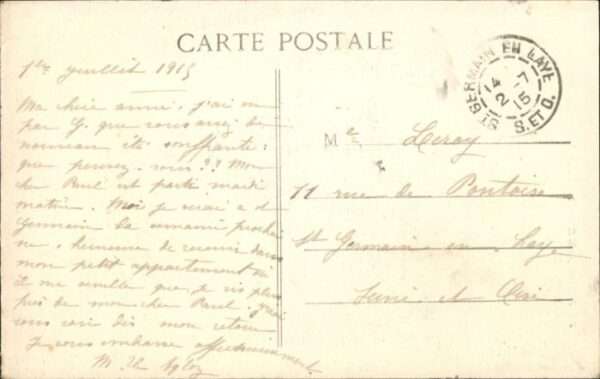 CARTE POSTALE
1er juillet 1915
Ma chère amie, j'ai su
par G. que vous avez été
nouveau été souffrante:
que pouvez-vous?? Mon
cher Paul est parti mardi
matin. Moi je serai à St
Germain la semaine prochai
ne, heureuse de revenir dans
mon petit appartement où
il me semble que je vis plus
près de mon cher Paul. J'irai
vous voir dès mon retour
Je vous embrasse affectueusement.
ST GERMAIN EN LAYE
14
2-7
15
S. ET O.
Me Leroy
11 rue de Pontoise
St Germain en Laye
Seine et Oise